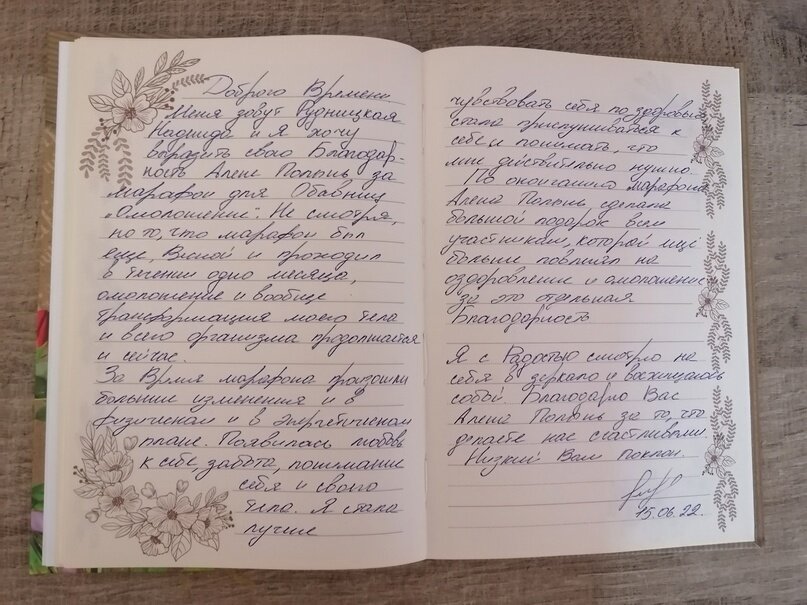 Доброго Времени.
Меня зовут Рудницкая
Надежда и я хочу
выразить свою Благодар-
ность Алене Полынь за
марафон для Обаяниц
„Омоложение". Не смотря,
на то, что марафон был
еще, Весной и проходил
в течении одно месяца,
омоложение и вообще
трансформация моего тела
и всего организма продолжается
и сейчас.
За Время марафона произошли
большие изменения и в
физическом и в энергетическом
плане. Появилась любовь
к себе, забота, понимание
себя и своего
тела. Я стала
лучше
чувствовать себя по здоровью,
стала прислушиваться к
себе и понимать, что
мне действительно нужно.
По окончанию марафона
Алена Полынь сделала
большой подарок всем
участникам, который ещё
больше повлиял на
оздоровление и омоложение
за это отдельная
Благодарность
Я с Радостью смотрю на
себя в зеркало и восхищаюсь
собой. Благодарю Вас
Алена Полынь за то, что
делаете нас счастливыми.
Низкий Вам Поклон.
15.06.22.